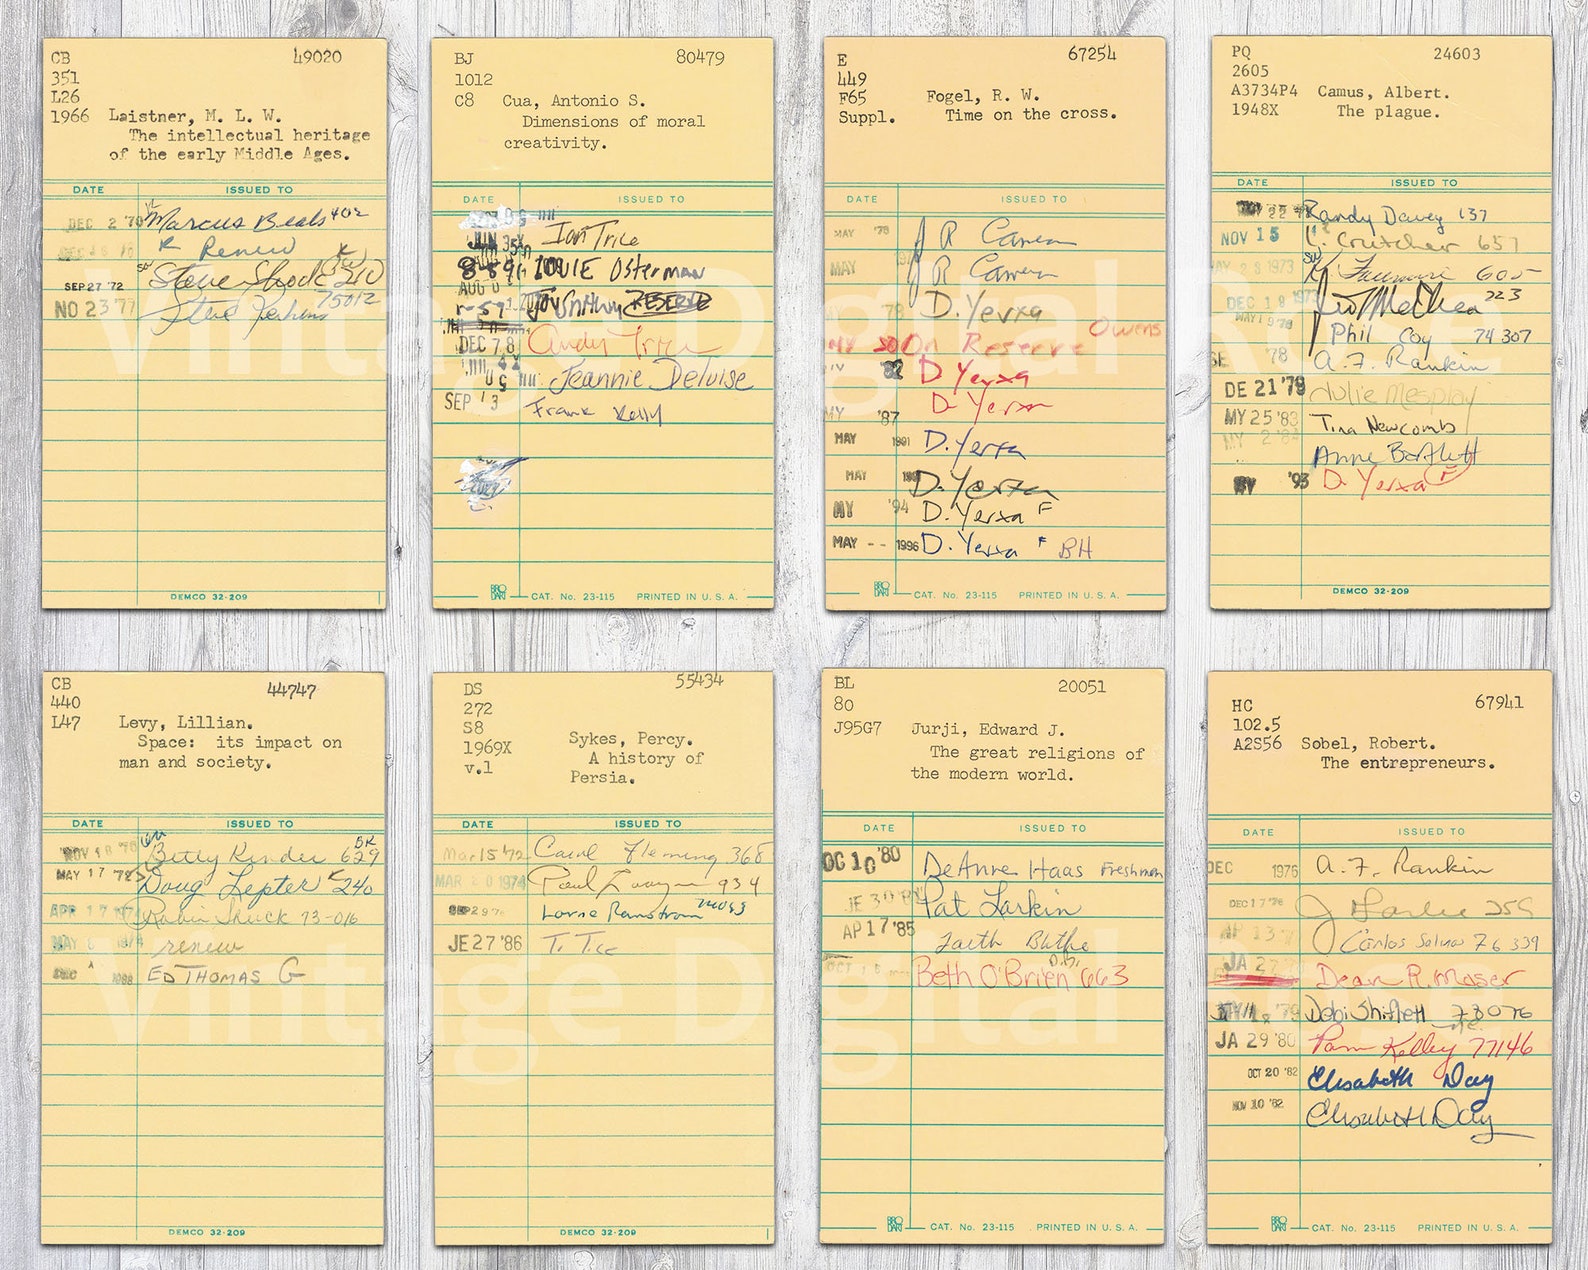 CB 49020
351
L26
1966 Laistner, M. L. W.
The intellectual heritage
of the early Middle Ages.
DATE ISSUED TO
DEC 2 '70 Marcus Beals 402
Renew
SEP 27 '72 Steve Shook 210
NO 23 '77 Steve Perkins 75012
DEMCO 32-209
BJ 80479
1012
C8 Cua, Antonio S.
Dimensions of moral
creativity.
DATE ISSUED TO
JUN Ian Trice
8-8-91 Louie Osterman
AUG
RESERVE
DEC 7 8 Andy Trice
Jeannie Deluise
SEP 13 Frank Kelly
BRO DART CAT. No. 23-115 PRINTED IN U. S. A.
E 67254
449
F65 Fogel, R. W.
Suppl. Time on the cross.
DATE ISSUED TO
MAY '78 J R Cameron
MAY J R Cameron
78 D. Yerxa
MY On Reserve Owens
82 D Yerxa
MY '87 D. Yerxa
MAY 1991 D. Yerxa
MAY D. Yerxa
MY '94 D. Yerxa F
MAY -- 1996 D. Yerxa F BH
BRO DART CAT. No. 23-115 PRINTED IN U. S. A.
PQ 24603
2605
A3734P4 Camus, Albert.
1948X The plague.
DATE ISSUED TO
22 Randy Davey 137
NOV 15 L. Crutcher 657
MAY 28 1973 605
DEC 19 1973 McCrea 223
MAY 19 '78 Phil Coy 74 307
SE '78 A. F. Rankin
DE 21 '79 Julie Mesplay
MY 25 '83 Tina Newcomb
MY 2 '84 Anne Bartlett
'93 D. Yerxa F
DEMCO 32-209
CB 44747
440
L47 Levy, Lillian.
Space: its impact on
man and society.
DATE ISSUED TO
NOV 18 '70 Betty Kinder 629 BK
MAY 17 '72 Doug Lepter K 240
APR 17 1974 Robin Shuck 73-016
MAY 6 1974 renew
DEC 1988 ED THOMAS G
DEMCO 32-209
DS 55434
272
S8
1969X Sykes, Percy.
v.1 A history of
Persia.
DATE ISSUED TO
Mar 15 '72 Carol Fleming 368
MAR 20 1974 Paul 934
SEP 29 '76 Lorne Ramstrom
JE 27 '86 T. Tice
DEMCO 32-209
BL 20051
80
J95G7 Jurji, Edward J.
The great religions of
the modern world.
DATE ISSUED TO
OC 10 '80 DeAnne Haas Freshman
JE 30 '81 Pat Larkin
AP 17 '85 Faith Blithe
OCT Beth O'Brien 663
BRO DART CAT. No. 23-115 PRINTED IN U. S. A.
HC 67941
102.5
A2S56 Sobel, Robert.
The entrepreneurs.
DATE ISSUED TO
DEC 1976 A. F. Rankin
DEC 17 '76 J 259
AP 13 '77 Carlos Salina 76 339
JA 27 Dean R. Moser
Debi Shiflett 73076
JA 29 '80 Pam Kelley 77146
OCT 20 '82 Elisabeth Day
NOV 10 '82 Elisabeth Day
BRO DART CAT. No. 23-115 PRINTED IN U. S. A.
Vintage Digital Rose
Vintage Digital Rose